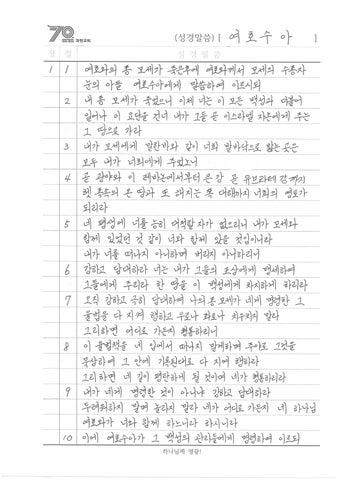 70 과천교회
(성경말씀) [ 여호수아 ]
장 절 성경말씀
1 1 여호와의 종 모세가 죽은후에 여호와께서 모세의 수종자
눈의 아들 여호수아에게 말씀하여 이르시되
2 내 종 모세가 죽었으니 이제 너는 이 모든 백성과 더불어
일어나 이 요단을 건너 내가 그들 곧 이스라엘 자손에게 주는
그 땅으로 가라
3 내가 모세에게 말한바와 같이 너희 발바닥으로 밟는 곳은
모두 내가 너희에게 주었노니
4 곧 광야와 이 레바논에서부터 큰 강 곧 유브라데 강까지
헷 족속의 온 땅과 또 해지는 쪽 대해까지 너희의 영토가
되리라
5 네 평생에 너를 능히 대적할 자가 없으리니 내가 모세와
함께 있었던 것 같이 너와 함께 있을 것임이니라
내가 너를 떠나지 아니하며 버리지 아니하리니
6 강하고 담대하라 너는 내가 그들의 조상에게 맹세하여
그들에게 주리라 한 땅을 이 백성에게 차지하게 하리라
7 오직 강하고 극히 담대하여 나의 종 모세가 네게 명령한 그
율법을 다 지켜 행하고 우로나 좌로나 치우치지 말라
그리하면 어디로 가든지 형통하리니
8 이 율법책을 네 입에서 떠나지 말게하며 주야로 그것을
묵상하여 그 안에 기록된대로 다 지켜 행하라
그리하면 네 길이 평탄하게 될 것이며 네가 형통하리라
9 내가 네게 명령한 것이 아니냐 강하고 담대하라
두려워하지 말며 놀라지 말라 네가 어디로 가든지 네 하나님
여호와가 너와 함께 하느니라 하시니라
10 이에 여호수아가 그 백성의 관리들에게 명령하여 이르되
하나님께 영광!